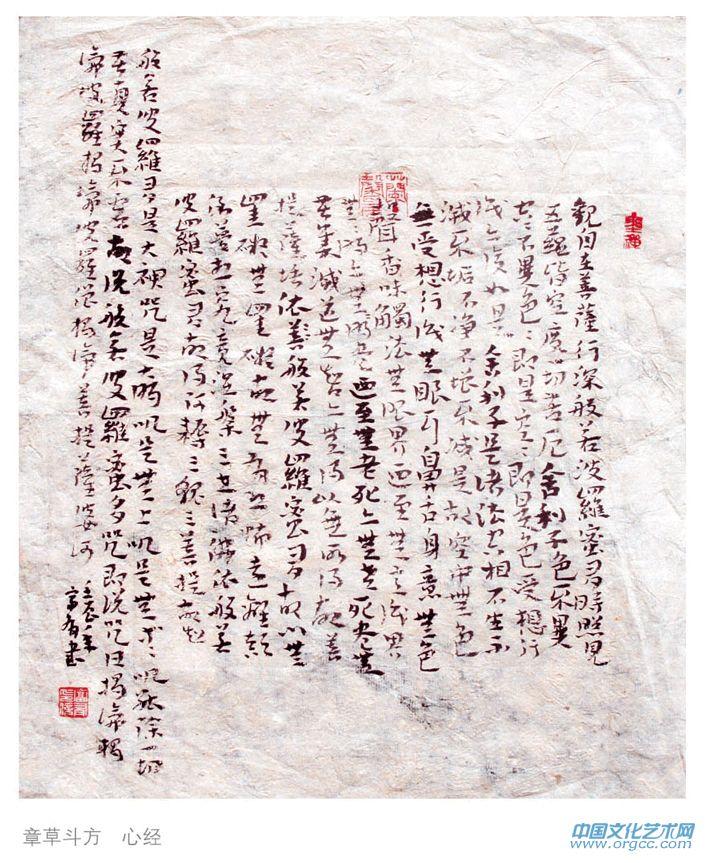 觀自在菩薩行深般若波羅蜜多時照見
五蘊皆空度一切苦厄舍利子色不異
空空不異色色即是空空即是色受想行
識亦復如是舍利子是諸法空相不生不
滅不垢不净不增不減是故空中無色
無受想行識無眼耳鼻舌身意無色
聲香味觸法無眼界乃至無意識界
無無明亦無無明盡乃至無老死亦無老死盡無
苦集滅道無智亦無得以無所得故菩
提薩埵依般若波羅蜜多故心無
罣礙無罣礙故無有恐怖遠離顛
倒夢想究竟涅槃三世諸佛依般若
波羅蜜多故得阿耨三藐三菩提故知
般若波羅蜜多是大神咒是大明咒是無上咒是無等等咒能除一切
苦真實不虛故說般若波羅蜜多咒即說咒曰揭諦揭
諦波羅揭諦波羅僧揭諦菩提薩婆訶
壬辰年
書
章草斗方 心经
中国文化艺术网
www.orgcc.com